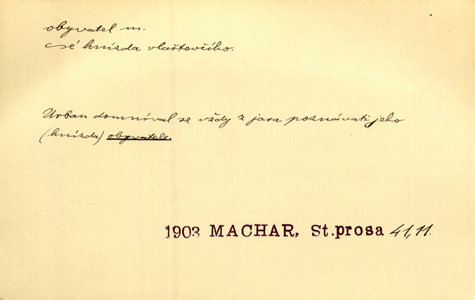 obyvatel m.
-é hnízda vlaštovčího.
Urban domníval se vždy z jara poznávati jeho
(hnízda) obyvatele.
1903 MACHAR, St.prosa 41,11.